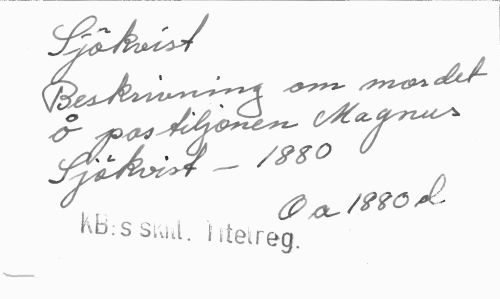 Sjökvist
Beskrivning om mordet
å postiljonen Magnus
Sjökvist – 1880
Oa 1880 d
KB:s skill. Titelreg.